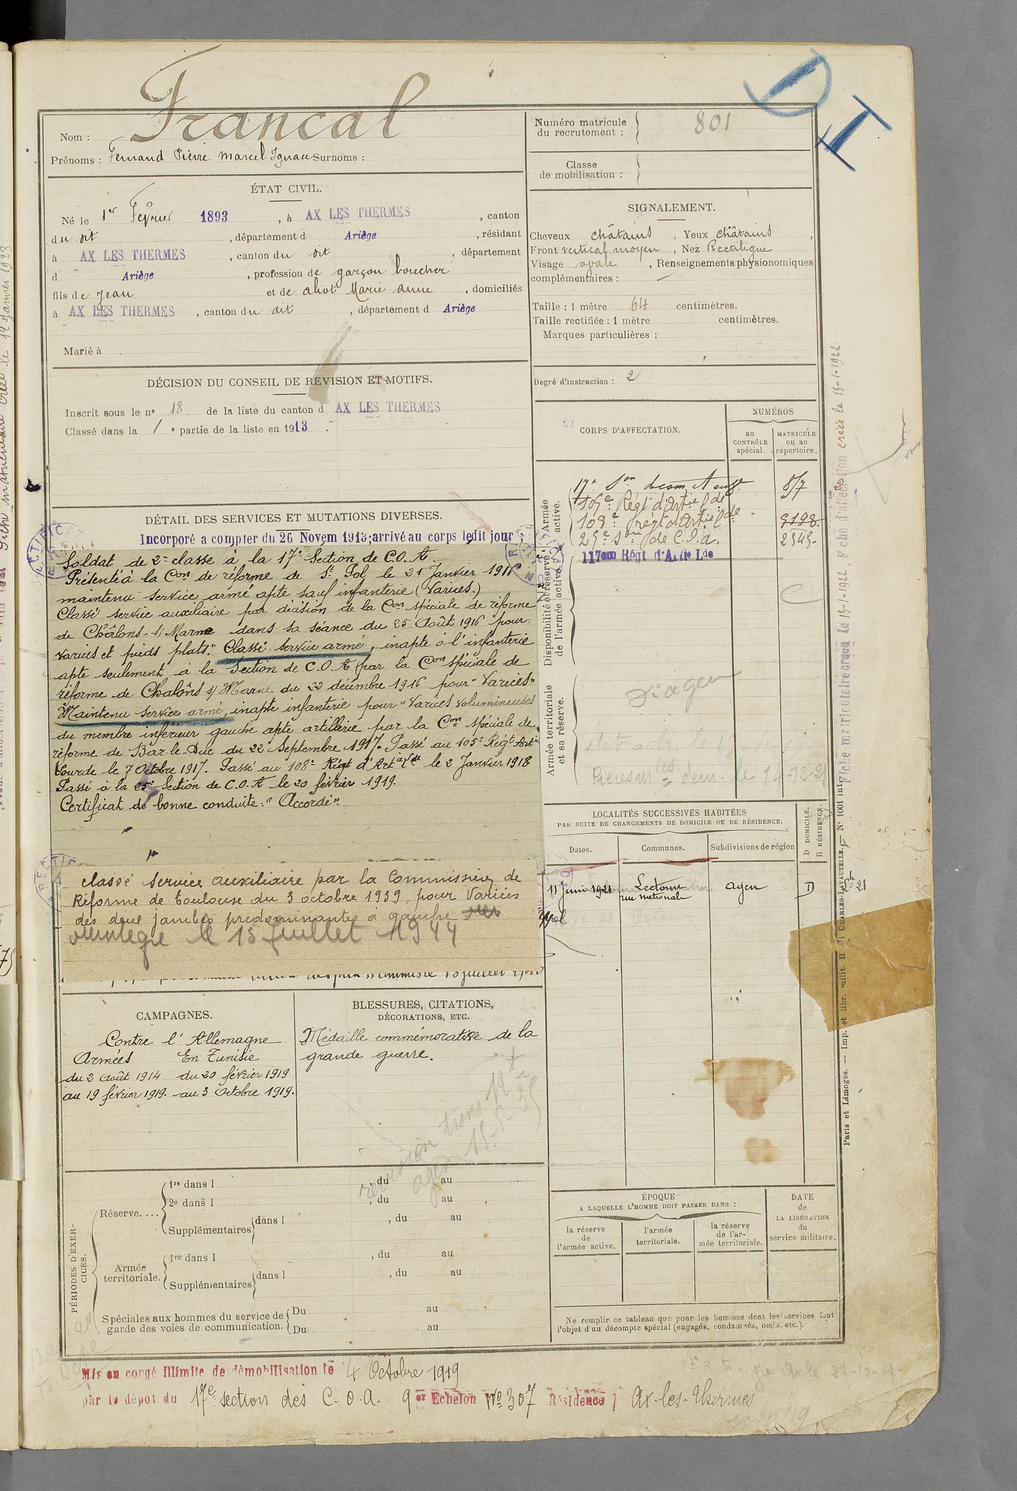 Francal
Nom :
Prénoms : Fernand Pierre Marcel Ignace Surnoms :
Numéro matricule du recrutement : 801
Classe de mobilisation :
ÉTAT CIVIL.
Né le 1er Février 1893, à AX LES THERMES, canton
du dit, département d Ariège, résidant
à AX LES THERMES, canton du dit, département
d Ariège, profession de garçon boucher
fils de Jean et de Marie Anne, domiciliés
à AX LES THERMES, canton du dit, département d Ariège
Marié à
SIGNALEMENT.
Cheveux châtains, Yeux châtains,
Front vertical moyen, Nez Rectiligne
Visage ovale, Renseignements physionomiques
complémentaires :
Taille : 1 mètre 64 centimètres.
Taille rectifiée : 1 mètre centimètres.
Marques particulières :
Degré d'instruction : 2
DÉCISION DU CONSEIL DE RÉVISION ET MOTIFS.
Inscrit sous le n° 18 de la liste du canton d AX LES THERMES
Classé dans la 1e partie de la liste en 1913.
CORPS D'AFFECTATION.
NUMÉROS
au CONTRÔLE spécial.
MATRICULE ou au répertoire.
Armée active.
105e Régt d'Artie Lde
Disponibilité et réserve de l'armée active.
117ème Régt d'Artie Lde
Armée territoriale et sa réserve.
DÉTAIL DES SERVICES ET MUTATIONS DIVERSES.
Incorporé a compter du 26 Novem 1913; arrivé au corps ledit jour;
Soldat de 2e classe à la 17e Section de C.O.A.
Présenté à la Con de réforme de St Pol le 21 Janvier 1916
maintenu service armé apte sauf infanterie (Varices.)
Classé service auxiliaire par décision de la Con spéciale de réforme
de Châlons-s/Marne dans sa séance du 25 Août 1916 pour:
varices et pieds plats." Classé service armé, inapte à l'infanterie
apte seulement, à la Section de C.O.A par la Con spéciale de
réforme de Chalôns s/ Marne du 22 décembre 1916 pour "Varices"
Maintenu Service armé, inapte infanterie pour "Varices volumineuses
du membre inférieur gauche apte artillerie par la Con spéciale de
réforme de Bar le Duc du 22 Septembre 1917. Passé au 105e Régt Artie
Lourde le 7 Octobre 1917. Passé au 108e Régt d'Artie Lde le 2 Janvier 1918
Passé à la 25e Section de C.O.A le 20 février 1919.
Certificat de bonne conduite: "Accordé".
classé service auxiliaire par la Commission de
Réforme de Toulouse du 3 octobre 1939 pour Varices
des deux jambes prédominantes à gauche
le 15 Juillet 1944
LOCALITÉS SUCCESSIVES HABITÉES
PAR SUITE DE CHANGEMENTS DE DOMICILE OU DE RÉSIDENCE.
Dates.
Communes.
Subdivisions de région
D DOMICILE. R RÉSIDENCE.
11 juin 1921 Lectoure rue national Agen D
CAMPAGNES.
Contre l'Allemagne
Armées En Tunisie
du 2 Août 1914 du 20 février 1919
au 19 février 1919. au 3 Octobre 1919.
BLESSURES, CITATIONS,
DÉCORATIONS, ETC.
Médaille commémorative de la
grande guerre.
PÉRIODES D'EXERCICES.
Réserve....
1re dans l , du au
2e dans l , du au
Supplémentaires dans l , du au
Armée territoriale.
1re dans l , du au
Supplémentaires dans l , du au
Spéciales aux hommes du service de garde des voies de communication.
Du au
Du au
ÉPOQUE
A LAQUELLE L'HOMME DOIT PASSER DANS :
la réserve de l'armée active.
l'armée territoriale.
la réserve de l'armée territoriale.
DATE de LA LIBÉRATION du service militaire.
Ne remplir ce tableau que pour les hommes dont les services font
l'objet d'un décompte spécial (engagés, condamnés, omis, etc.).
Mis en congé illimité de démobilisation le 4 Octobre 1919
par le dépôt du 17e section des C.O.A. 9e Echelon No 307 Résidence Ax-les-Thermes